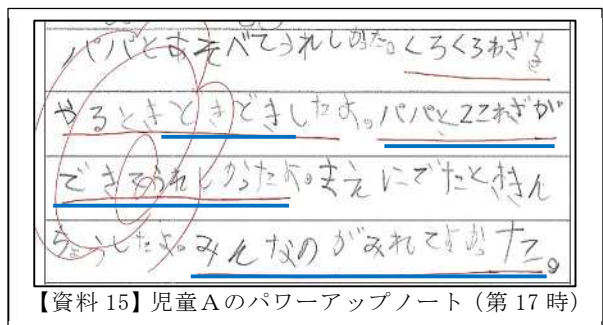 パパとあそべてうれしかた。くろくろわざを
やるときどきどきしたよ。パパとココわざが
できてうれしかったよ。まえにでたときん
ちょうしたよ。みんなのがみれてよかった。
【資料 15】児童Aのパワーアップノート（第 17 時）